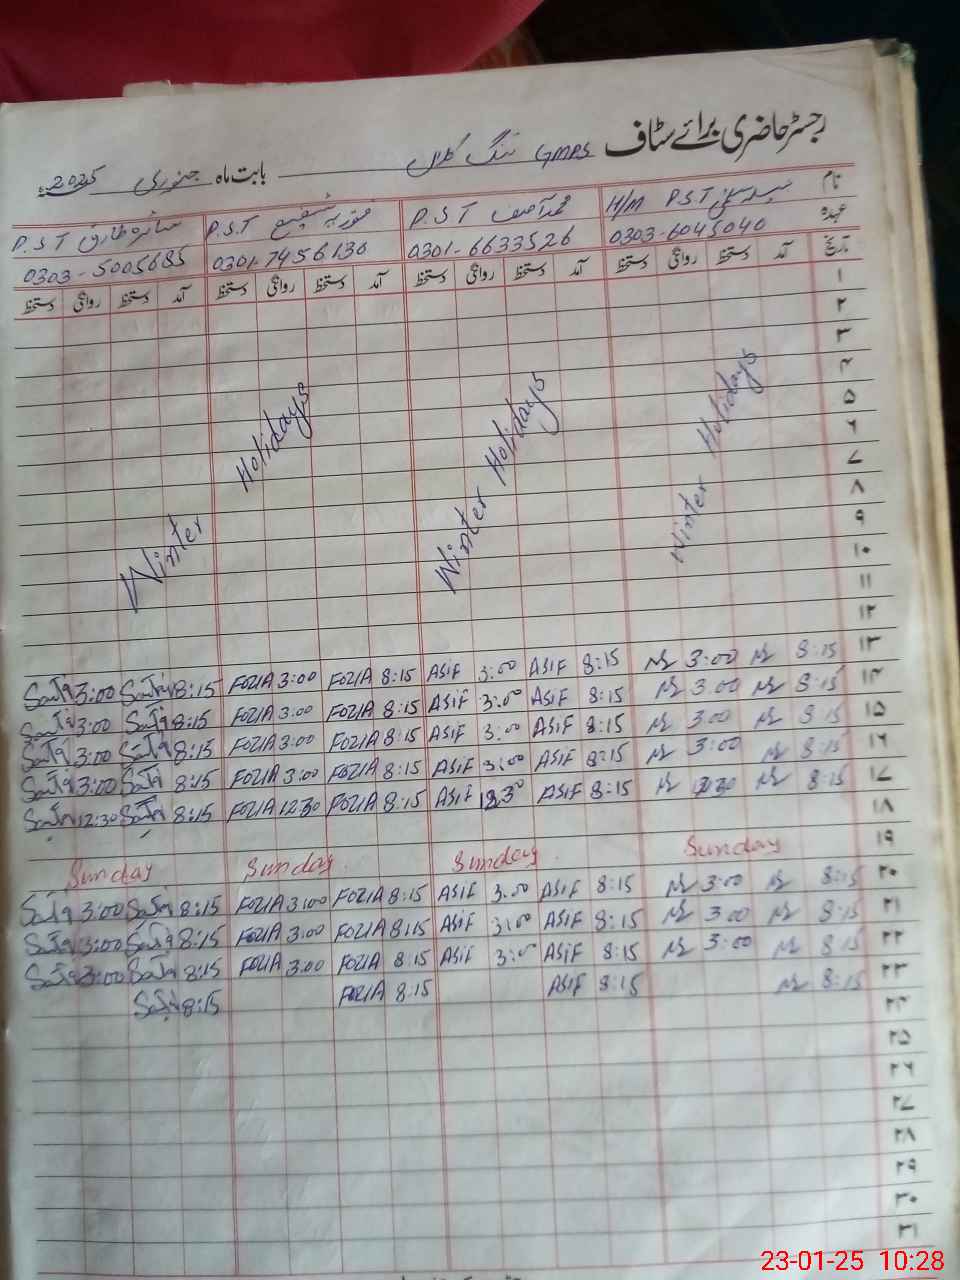 رجسٹر حاضری برائے سٹاف GMPS بابت ماہ جنوری 2025ء
نام H/M P.S.T محمد آصف P.S.T فوزیہ شفیع P.S.T سائرہ طارق P.S.T
عہدہ 0303-6045040 0301-6633526 0301-7456130 0303-5005685
تاریخ آمد دستخط روانگی دستخط آمد دستخط روانگی دستخط آمد دستخط روانگی دستخط آمد دستخط روانگی دستخط
۱
۲
۳
۴
۵
۶
۷
۸
۹
۱۰
۱۱
۱۲
Winter Holidays Winter Holidays Winter Holidays
3:00 8:15 FOZIA 3:00 FOZIA 8:15 ASIF 3:00 ASIF 8:15 3:00 8:15 ۱۳
3:00 8:15 FOZIA 3:00 FOZIA 8:15 ASIF 3:00 ASIF 8:15 3:00 8:15 ۱۴
3:00 8:15 FOZIA 3:00 FOZIA 8:15 ASIF 3:00 ASIF 8:15 3:00 8:15 ۱۵
3:00 8:15 FOZIA 3:00 FOZIA 8:15 ASIF 3:00 ASIF 8:15 3:00 8:15 ۱۶
12:30 8:15 FOZIA 12:30 FOZIA 8:15 ASIF ASIF 8:15 8:15 ۱۷
۱۸
Sunday Sunday Sunday Sunday ۱۹
3:00 8:15 FOZIA 3:00 FOZIA 8:15 ASIF 3:00 ASIF 8:15 3:00 8:15 ۲۰
3:00 8:15 FOZIA 3:00 FOZIA 8:15 ASIF 3:00 ASIF 8:15 3:00 8:15 ۲۱
3:00 8:15 FOZIA 3:00 FOZIA 8:15 ASIF 3:00 ASIF 8:15 3:00 8:15 ۲۲
8:15 FOZIA 8:15 ASIF 8:15 8:15 ۲۳
۲۴
۲۵
۲۶
۲۷
۲۸
۲۹
۳۰
۳۱
23-01-25 10:28